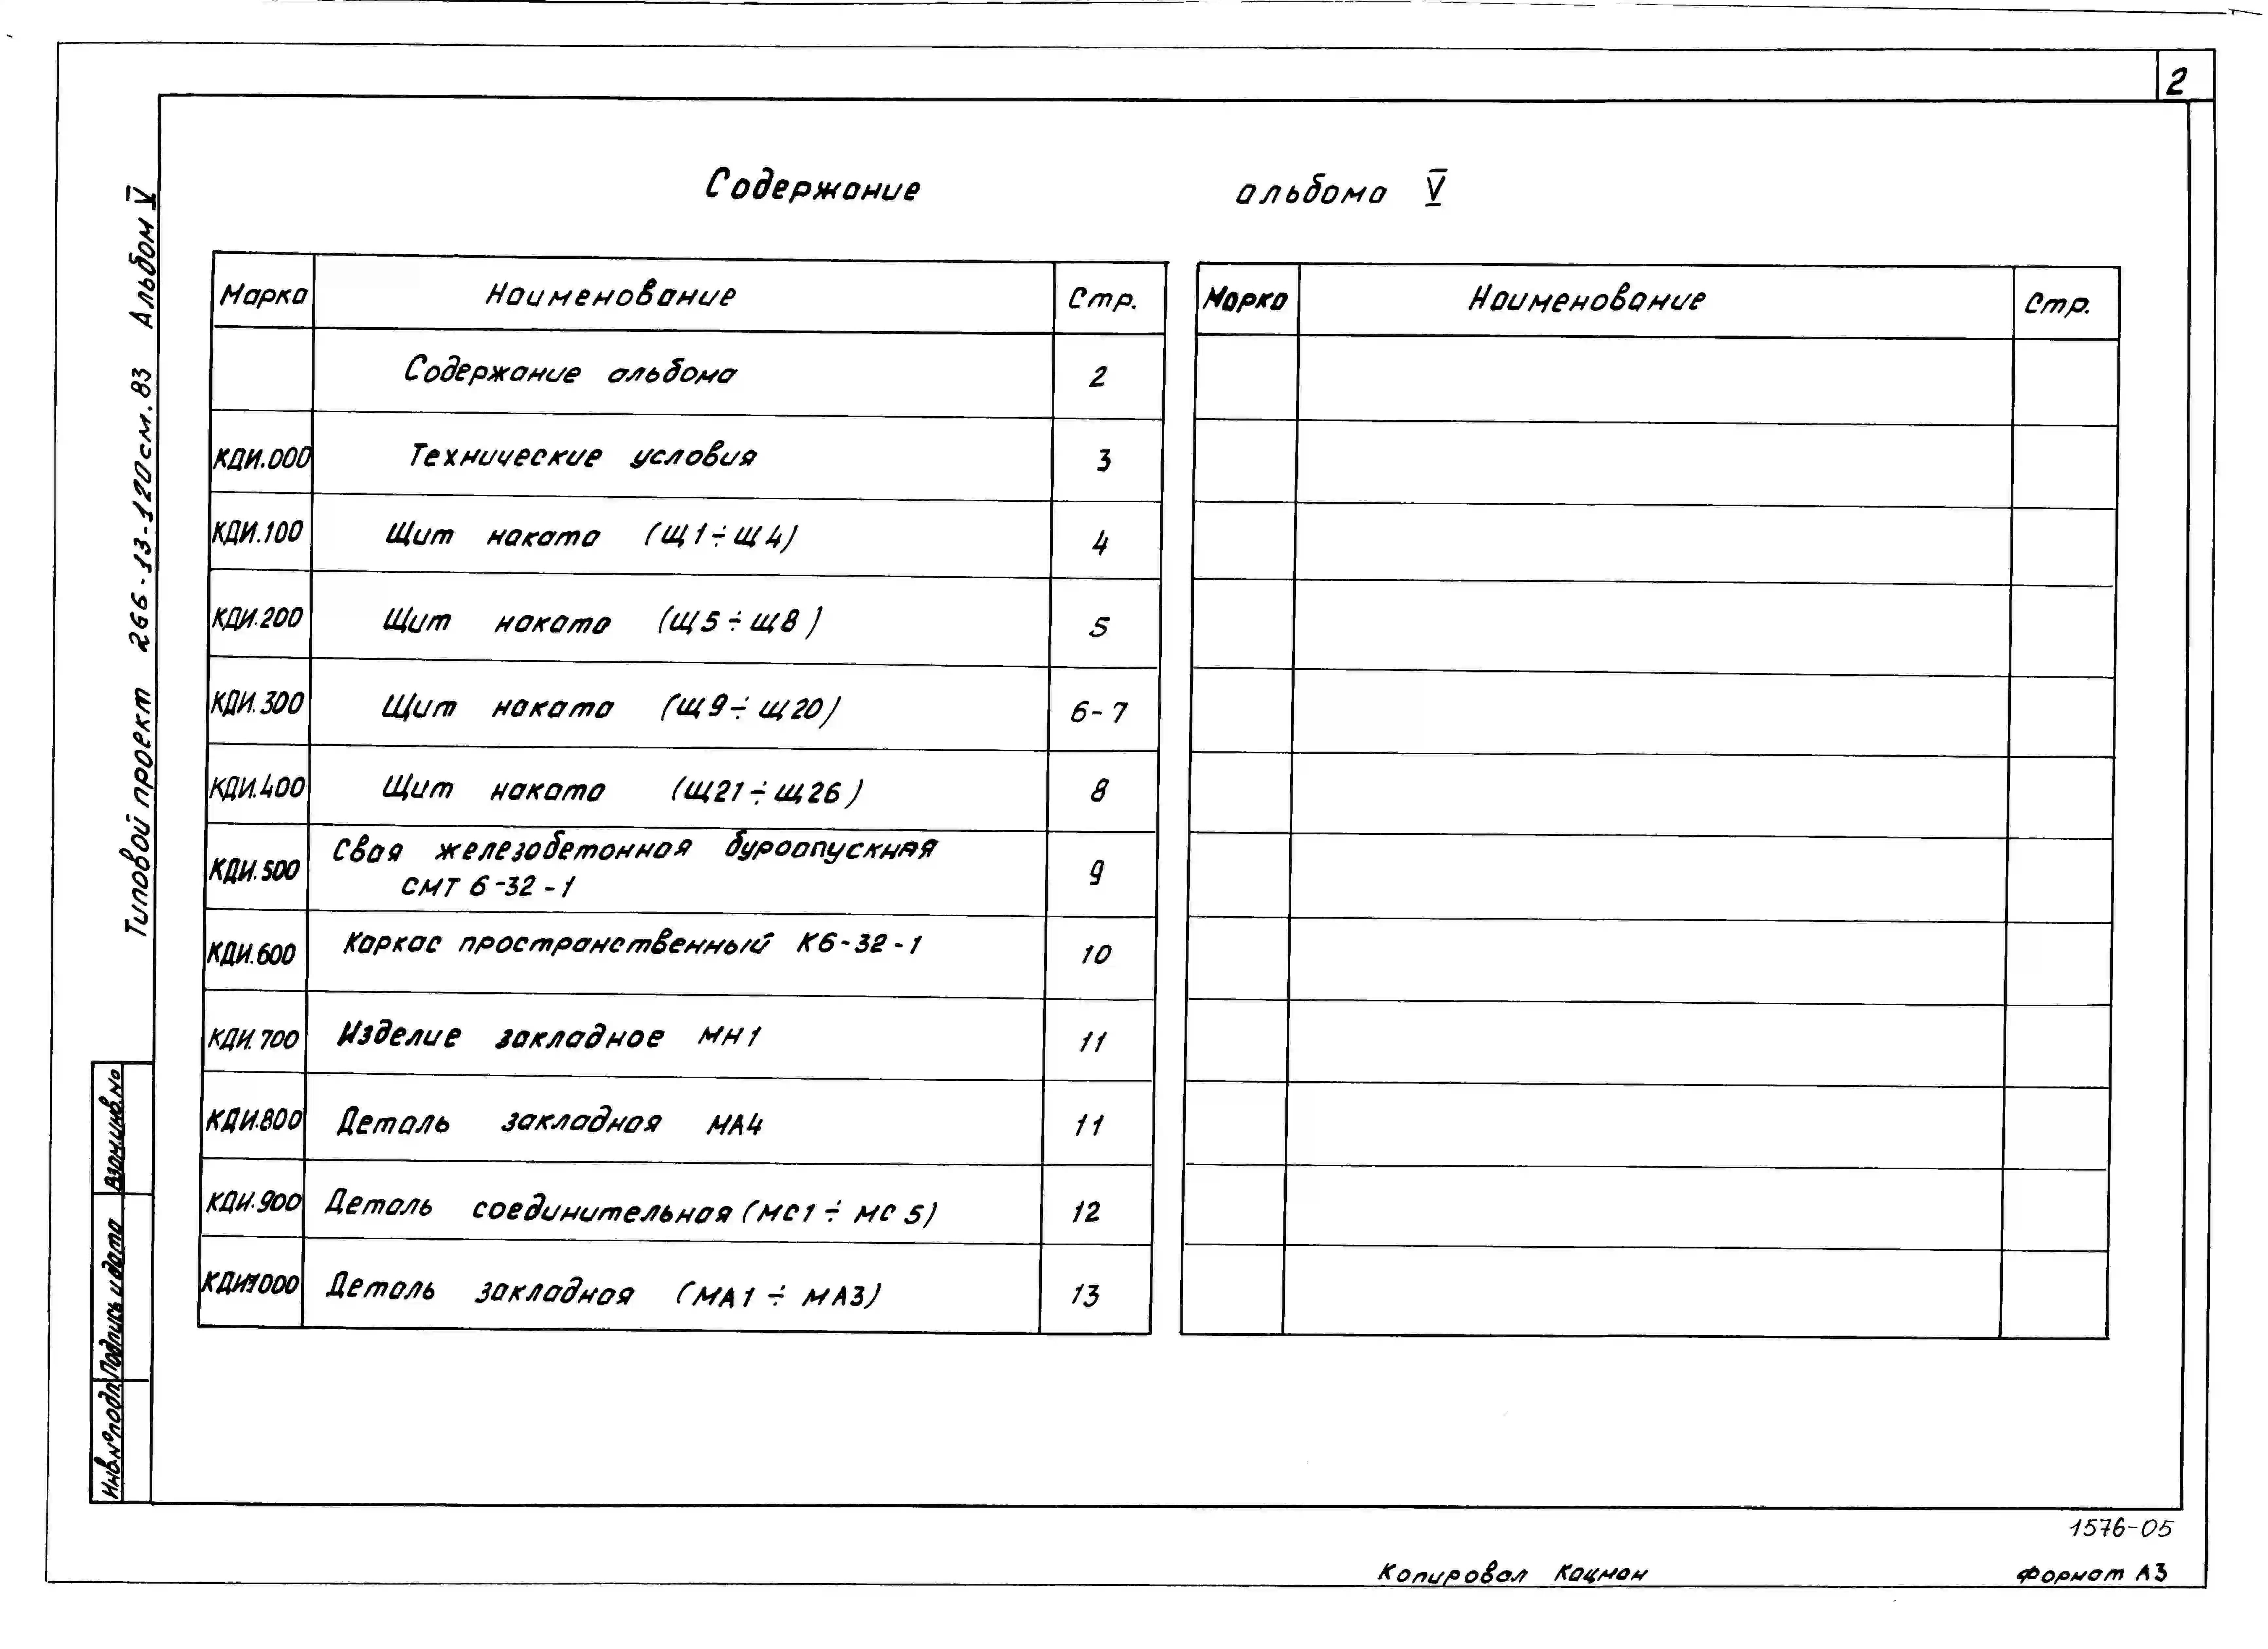 2
Содержание альбома V
Марка Наименование Стр.
Содержание альбома 2
КДИ.000 Технические условия 3
КДИ.100 Щит наката (Щ1÷Щ4) 4
КДИ.200 Щит наката (Щ5÷Щ8) 5
КДИ.300 Щит наката (Щ9÷Щ20) 6-7
КДИ.400 Щит наката (Щ21÷Щ26) 8
КДИ.500 Свая железобетонная буроопускная 9
СМТ 6-32-1
КДИ.600 Каркас пространственный К6-32-1 10
КДИ.700 Изделие закладное МН1 11
КДИ.800 Деталь закладная МА4 11
КДИ.900 Деталь соединительная (МС1÷МС5) 12
КДИ.1000 Деталь закладная (МА1÷МА3) 13
Марка Наименование Стр.
Типовой проект 266-13-120см.83 Альбом V
Взам.инв.№
Подпись и дата
Инв.№подл.
1576-05
Копировал Кацман Формат А3